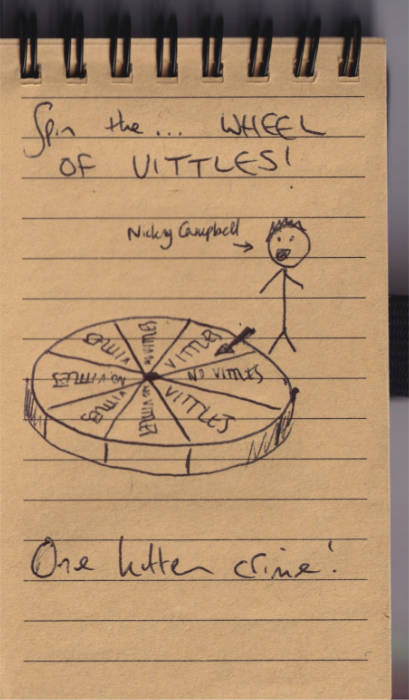 Spin the... WHEEL
OF VITTLES!
Nicky Campbell
VITTLES
NO VITTLES
VITTLES
NO VITTLES
VITTLES
NO VITTLES
VITTLES
NO VITTLES
One kitten crime!